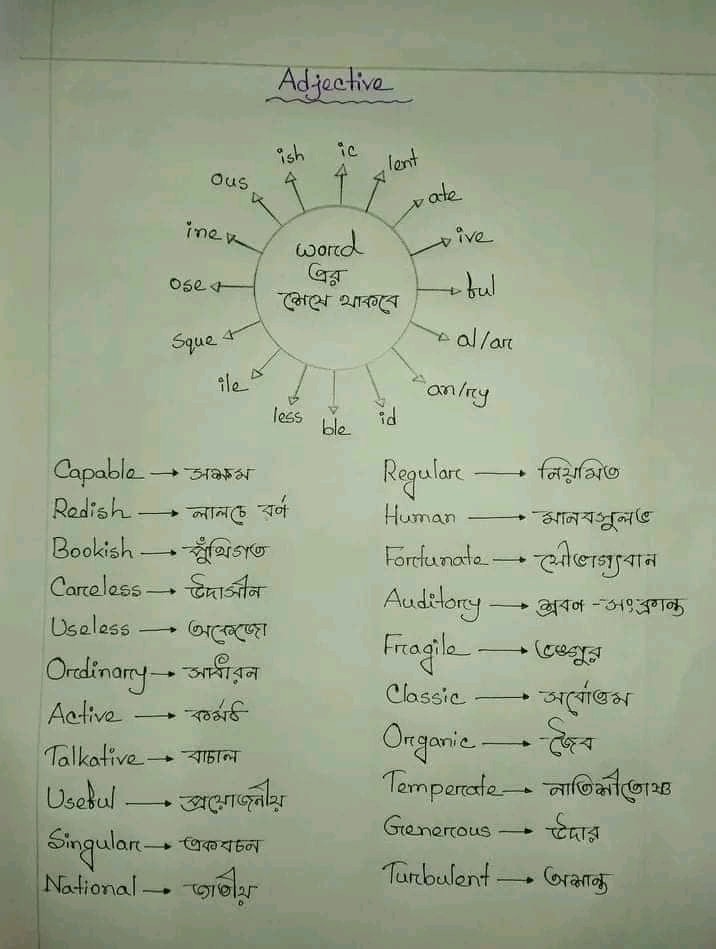 Adjective
ish
ic
lent
ous
ate
ine
ive
ose
ful
sque
al/ar
ile
an/ry
less
ble
id
word
এর
শেষে থাকবে
Capable → সক্ষম
Redish → লালচে বর্ণ
Bookish → পুঁথিগত
Careless → উদাসীন
Useless → অকেজো
Ordinary → সাধারন
Active → কর্মঠ
Talkative → বাচাল
Useful → প্রয়োজনীয়
Singular → একবচন
National → জাতীয়
Regular → নিয়মিত
Human → মানবসুলভ
Fortunate → সৌভাগ্যবান
Auditory → শ্রবন -সংক্রান্ত
Fragile → ভঙ্গুর
Classic → সর্বোত্তম
Organic → জৈব
Temperate → নাতিশীতোষ্ণ
Generous → উদার
Turbulent → অশান্ত